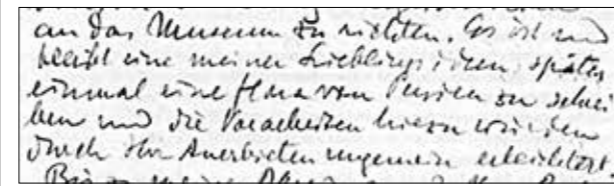 an das Museum zu richten. Es ist und
bleibt eine meiner Lieblingsideen, später
einmal eine Flora von Persien zu schrei
ben und die Vorarbeiten hierzu würden
durch Ihr Anerbieten ungemein erleichtert.